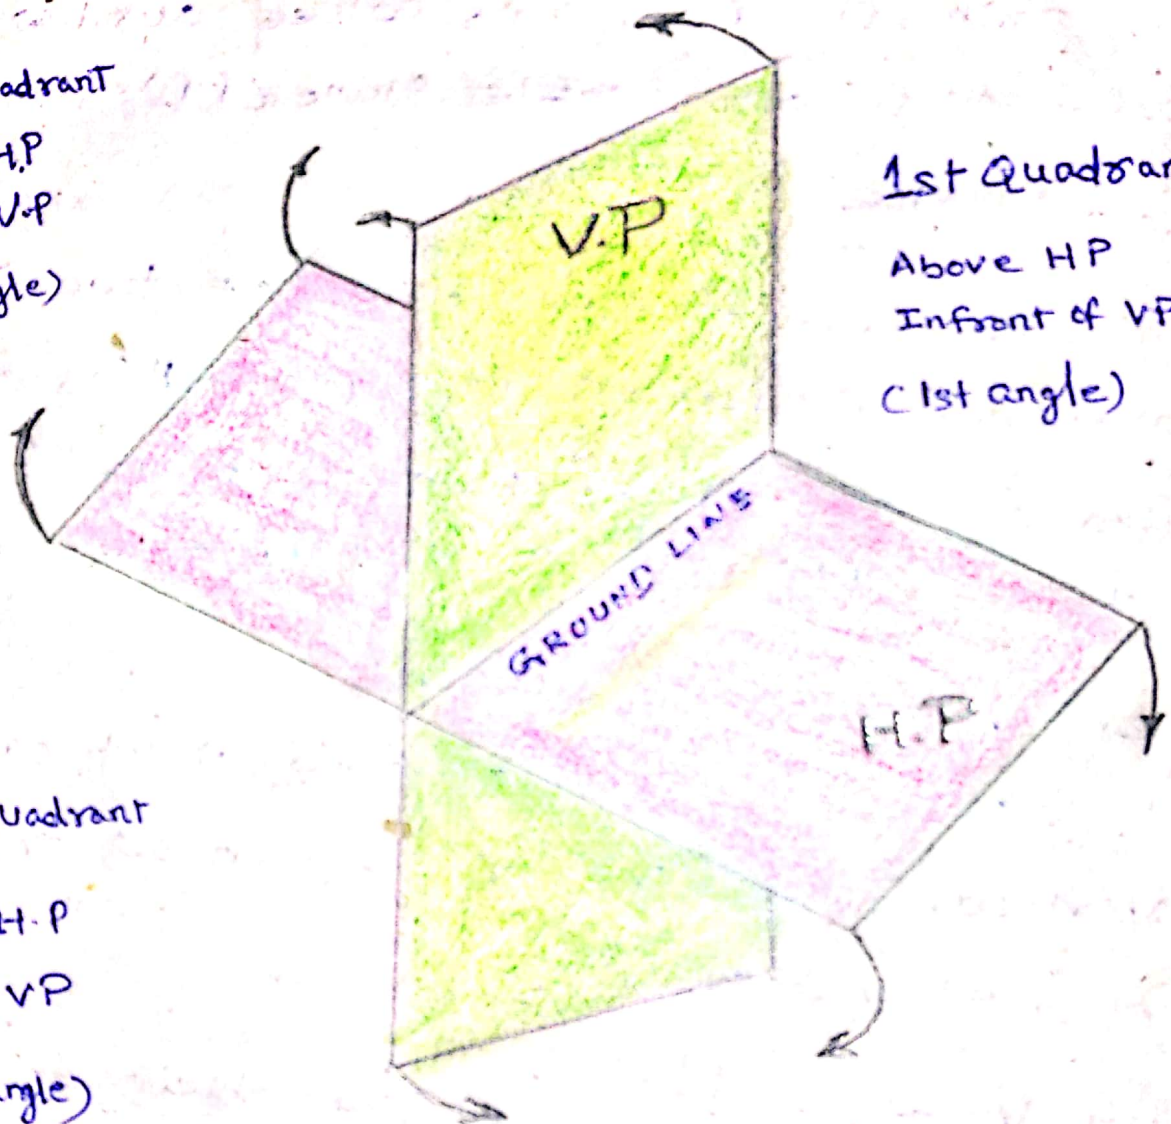 adrant
H.P
V.P
gle)
V.P
1st Quadran
Above HP
Infront of VP
(1st angle)
GROUND LINE
H.P
uadrant
H.P
VP
ngle)